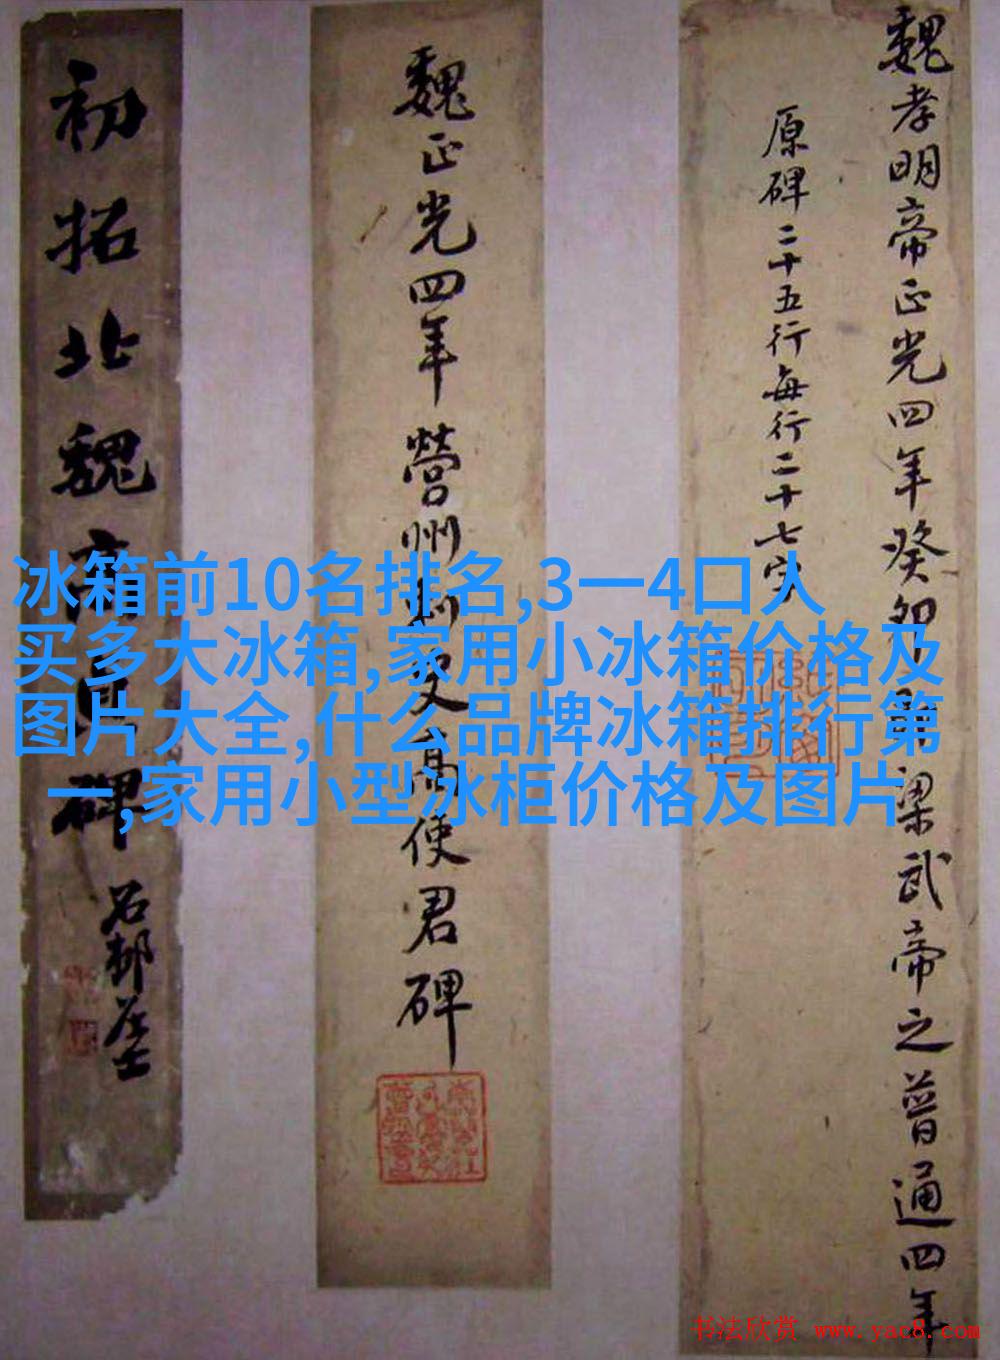 魏孝明帝正光四年癸卯即梁武帝之普通四年
原碑二十五行每行二十七字
魏正光四年營州刺史高使君碑
初拓北魏高貞碑
石邨居士
冰箱前10名排名,3一4口人
买多大冰箱,家用小冰箱价格及
图片大全,什么品牌冰箱排行第
一,家用小型冰柜价格及图片
书法欣赏 www.yac8.com